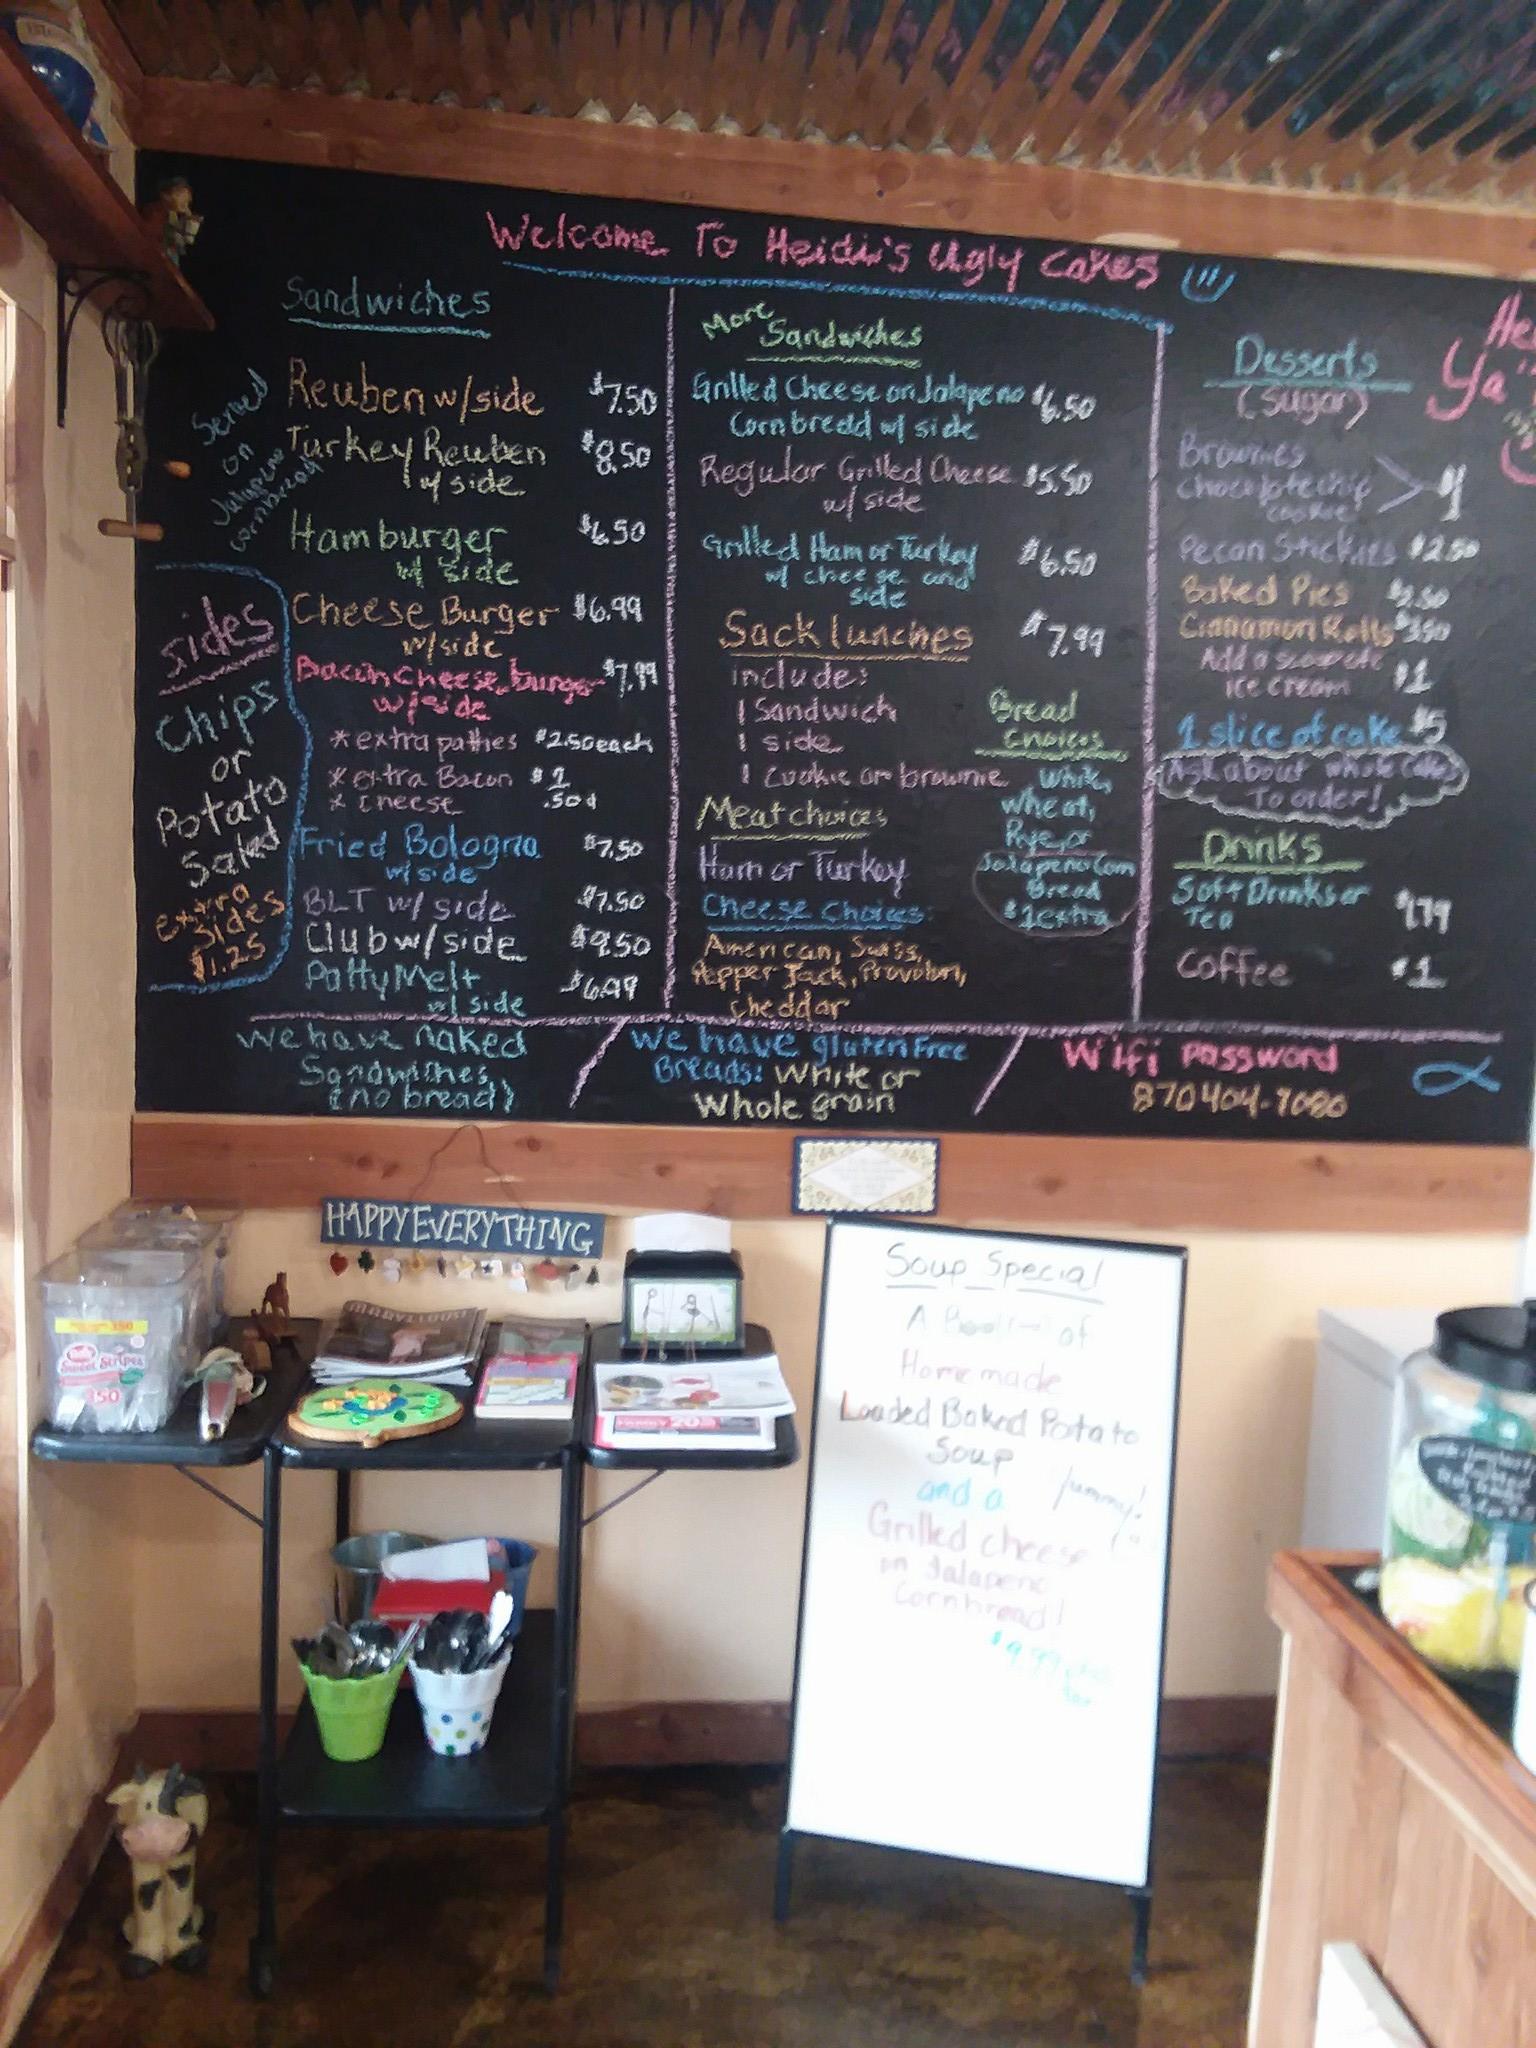 Welcome To Heidi's Ugly Cakes
Sandwiches
Served
on
Jalapeno
cornbread
Reuben w/side $7.50
Turkey Reuben $8.50
w/ side
Hamburger $6.50
w/ side
Cheese Burger $6.99
w/side
Bacon cheese burger $7.99
w/side
* extra patties $2.50 each
* extra Bacon $1
* cheese .50¢
Fried Bologna $7.50
w/ side
BLT w/ side $7.50
Club w/ side $9.50
Patty Melt $6.99
w/ side
sides
Chips
or
Potato
Salad
extra
sides
$1.25
More
Sandwiches
Grilled Cheese on Jalapeno $6.50
Cornbread w/ side
Regular Grilled Cheese $5.50
w/ side
Grilled Ham or Turkey $6.50
w/ cheese and
side
Sack lunches $7.99
include:
1 Sandwich
1 side
1 cookie or brownie
Meat choices
Ham or Turkey
Cheese Choices:
American, Swiss,
Pepper Jack, Provolon,
cheddar
Bread
choices
White,
wheat,
Rye, or
Jalapeno Corn
Bread
$1 extra
Desserts
(sugar)
Brownies
chocolate chip $1
cookie
Pecan Stickies $2.50
Baked Pies
Cinnamon Rolls
Add a scoop of
ice cream $1
1 slice of cake $5
Ask about whole cakes
To order!
Drinks
Soft Drinks or $1.79
Tea
Coffee $1
Ya'
We have naked
Sandwiches
(no bread)
We have gluten Free
Breads: White or
Whole grain
Wifi password
870 404-7080
HAPPY EVERYTHING
Sweet Stripes
350
20
Soup Special
A Bowl of
Homemade
Loaded Baked Potato
Soup
Yummy!
and a
Grilled cheese
on Jalapeno
Cornbread!
$9.99